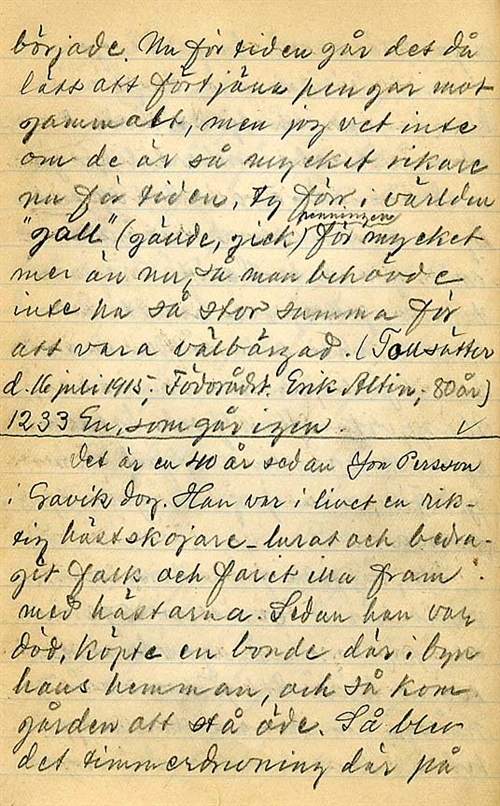 började. Nu för tiden går det då
lätt att förtjäna pengar mot
gammalt, men jag vet inte
om de är så mycket rikare
nu för tiden, ty förr i världen
penningen
"gall" (gällde, gick) för mycket
mer än nu, så man behövde
inte ha så stor summa för
att vara välbärgad. (Tallsätter
d. 16 juli 1915, Födorådst. Erik Altin, 80 år)
1233 En, som går igen. √
Det är en 40 år sedan Jon Persson
i Gavik dog. Han var i livet en rik-
tig hästskojare - lurat och bedra-
git folk och farit illa fram
med hästarna. Sedan han var
död, köpte en bonde där i byn
hans hemman, och så kom
gården att stå öde. Så blev
det timmerdrivning där på